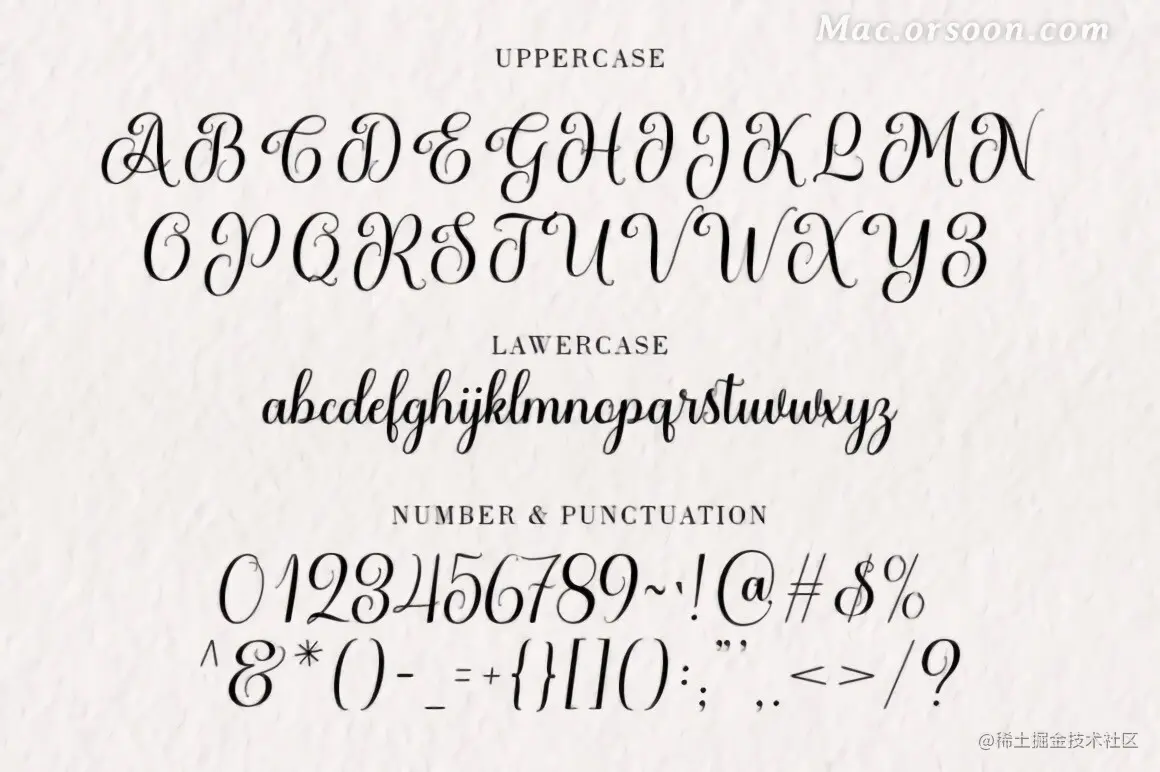 Mac.orsoon.com
UPPERCASE
ABCDEFGHIJKLMN
OPQRSTUVWXYZ
LAWERCASE
abcdefghijklmnopqrstuvwxyz
NUMBER & PUNCTUATION
0123456789~`!@#$%
^&*()-_=+{}[]():;"',.<>/?
@稀土掘金技术社区